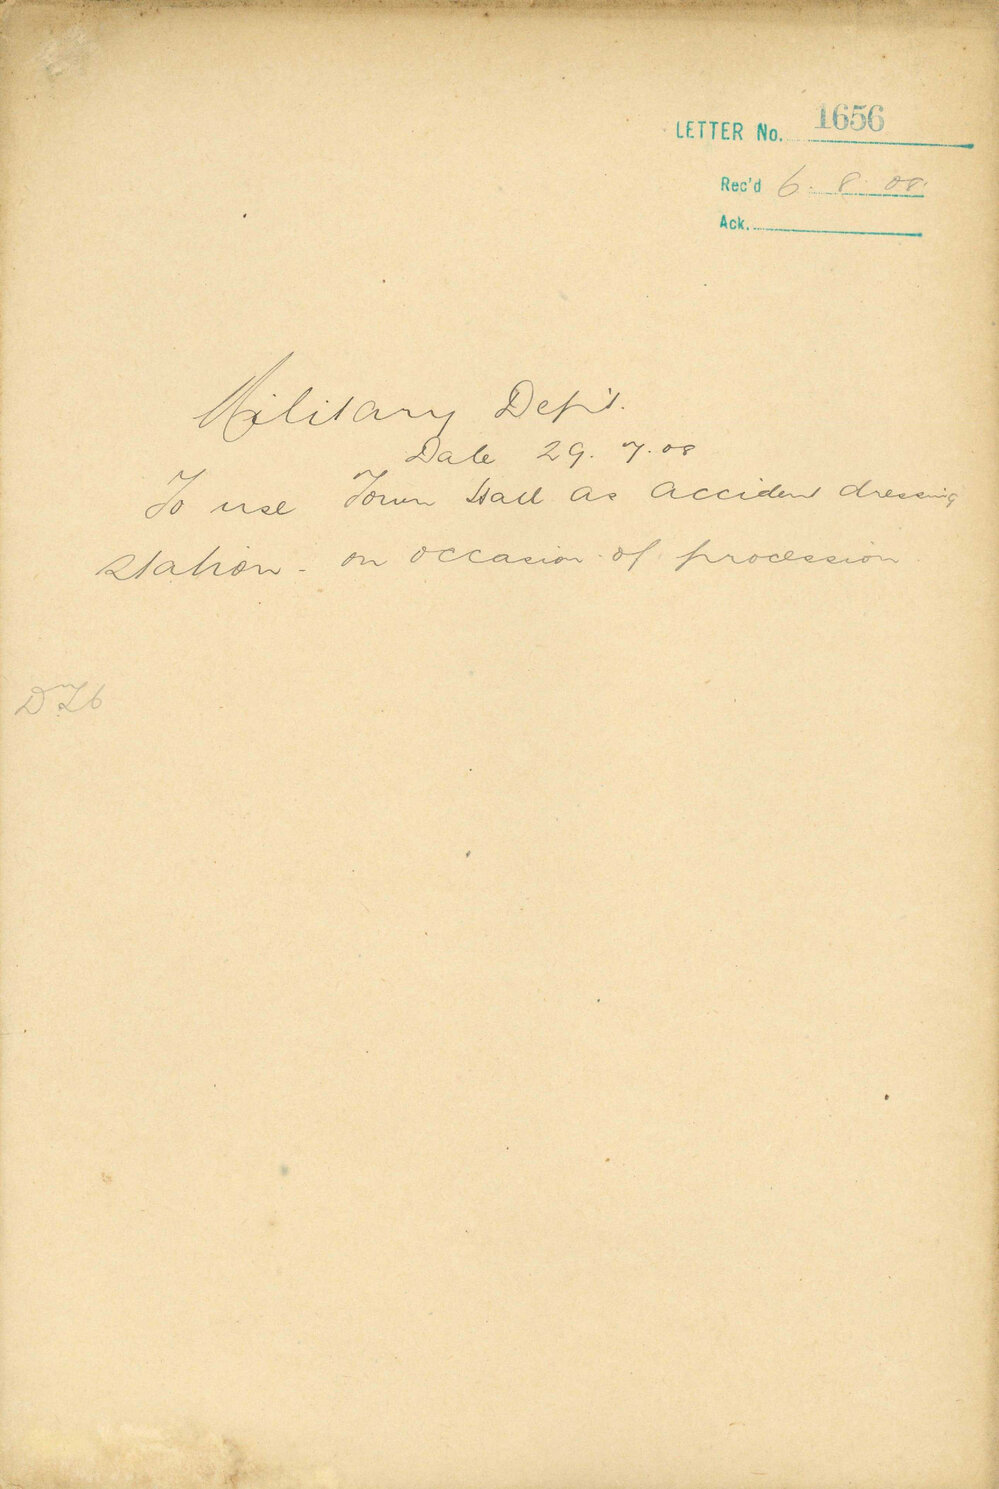 LETTER No. 1656
Rec'd 6. 8. 08.
Ack.
Military Dept.
Date 29. 7. 08
To use Town Hall as accident dressing
station - on occasion of procession